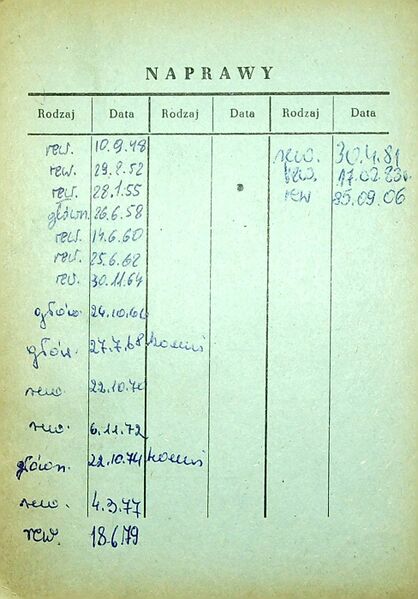 NAPRAWY
Rodzaj Data Rodzaj Data Rodzaj Data
rew. 10.9.48
rew. 29.2.52
rew. 28.1.55
główn. 26.6.58
rew. 14.6.60
rew. 25.6.62
rew. 30.11.64
główn. 24.10.66
głów. 27.7.68
rew. 22.10.70
rew. 6.11.72
główn. 22.10.74
rew. 4.3.77
rew. 18.6.79
rew. 30.4.81
rew. 17.02.83r.
rew 85.09.06